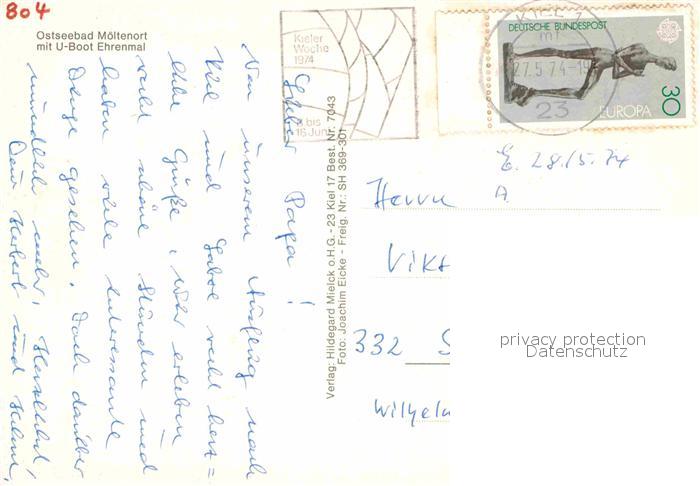 804
Ostseebad Möltenort
mit U-Boot Ehrenmal
Kieler
Woche
1974
bis
16 Juni
KIEL 1
mf
27.5.74-19
23
DEUTSCHE BUNDESPOST
30
EUROPA
E. 28/5.74
A.
Lieber Papa!
Von unserem Ausflug nach
Kiel und Laboe recht herz=
liche Grüße, wir erleben
recht schöne Stunden und
haben viele interessante
Dinge gesehen. Doch darüber
mündlich mehr, Herzlichst,
Dein Herbert und
Verlag: Hildegard Mielck o.H.G. - 23 Kiel 17 Best. Nr. 7043
Foto: Joachim Eicke - Freig. Nr.: SH 369-301
Herrn
Vikt
332 S
Wilhelm
privacy protection
Datenschutz